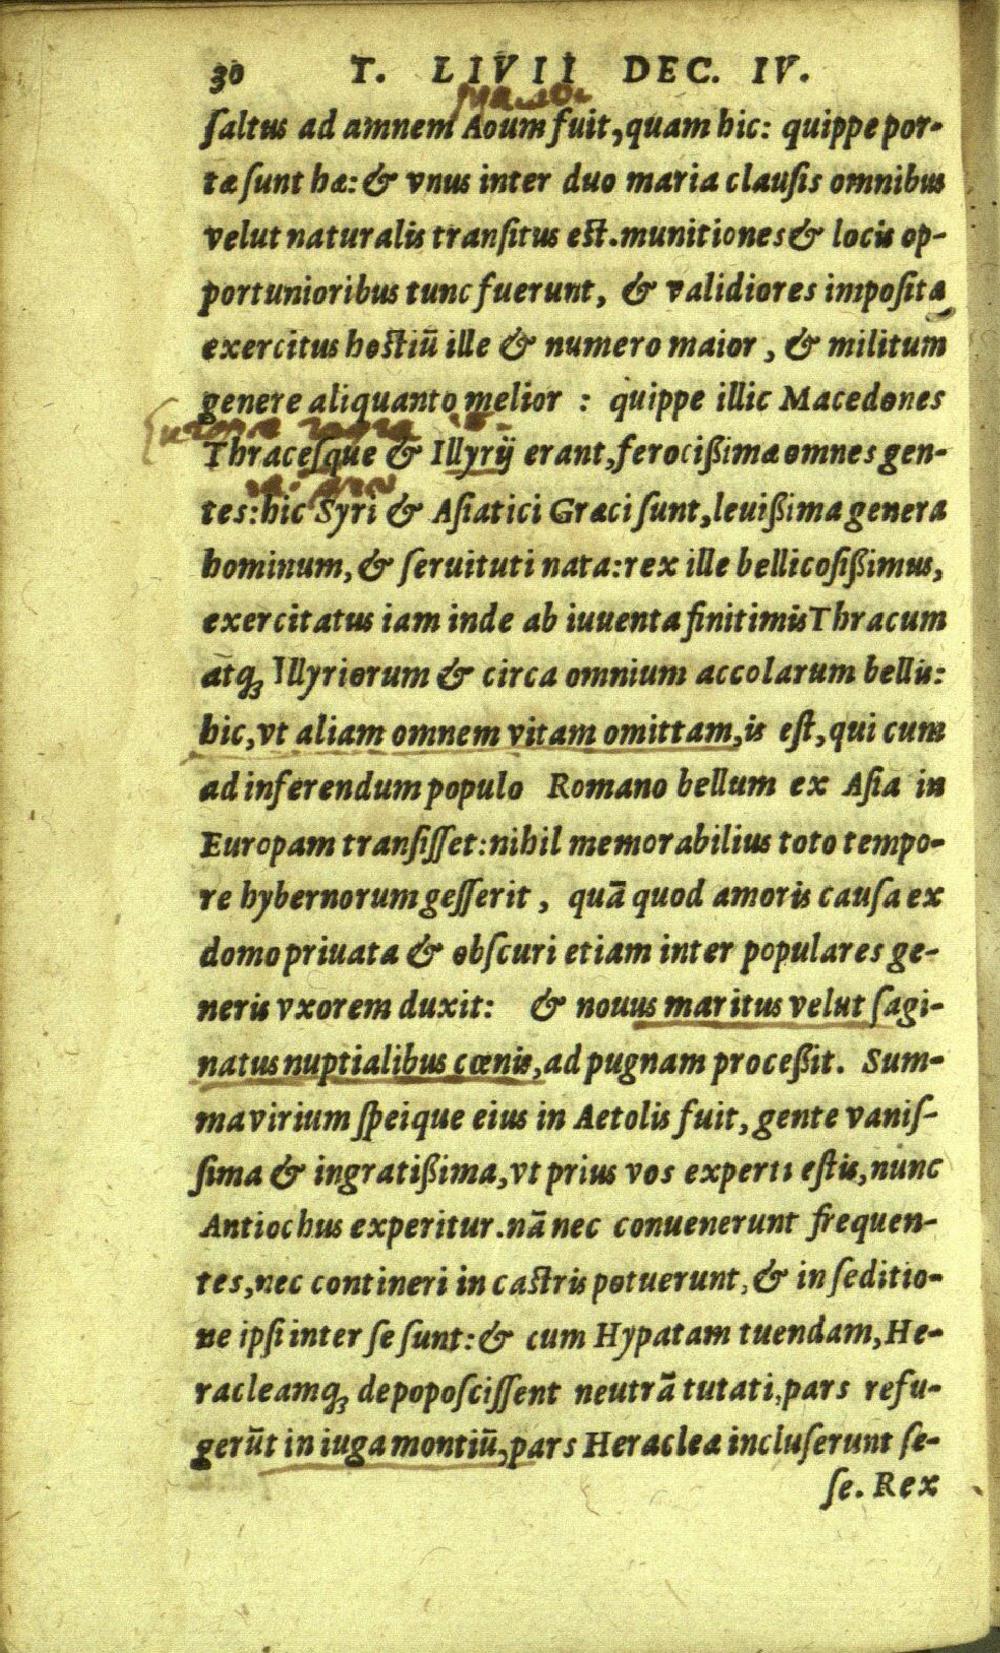 30 T. LIVII DEC. IV.
ſaltus ad amnem Aoum fuit, quam hic: quippe por-
tæ ſunt hæ: & vnus inter duo maria clauſis omnibus
velut naturalis tranſitus eſt. munitiones & locis op-
portunioribus tunc fuerunt, & validiores impoſitæ
exercitus hoſtiū ille & numero maior, & militum
genere aliquanto melior : quippe illic Macedones
Thraceſque & Illyrij erant, ferocißimæ omnes gen-
tes: hic Syri & Aſiatici Græci ſunt, leuißima genera
hominum, & ſeruituti nata: rex ille bellicoſißimus,
exercitatus iam inde ab iuuenta finitimis Thracum
atq; Illyriorum & circa omnium accolarum bellis:
hic, vt aliam omnem vitam omittam, is eſt, qui cum
ad inferendum populo Romano bellum ex Aſia in
Europam tranſiſſet: nihil memorabilius toto tempo-
re hybernorum geſſerit, quā quod amoris cauſa ex
domo priuata & obſcuri etiam inter populares ge-
neris vxorem duxit: & nouus maritus velut ſagi-
natus nuptialibus cœnis, ad pugnam proceßit. Sum-
ma virium ſpeique eius in Aetolis fuit, gente vaniſ-
ſima & ingratißima, vt prius vos experti eſtis, nunc
Antiochus experitur. nā nec conuenerunt frequen-
tes, nec contineri in caſtris potuerunt, & in ſeditio-
ne ipſi inter ſe ſunt: & cum Hypatam tuendam, He-
racleamq; depopoſciſſent neutrā tutati, pars refu-
gerūt in iuga montiū, pars Heracleæ incluſerunt ſe-
ſe. Rex